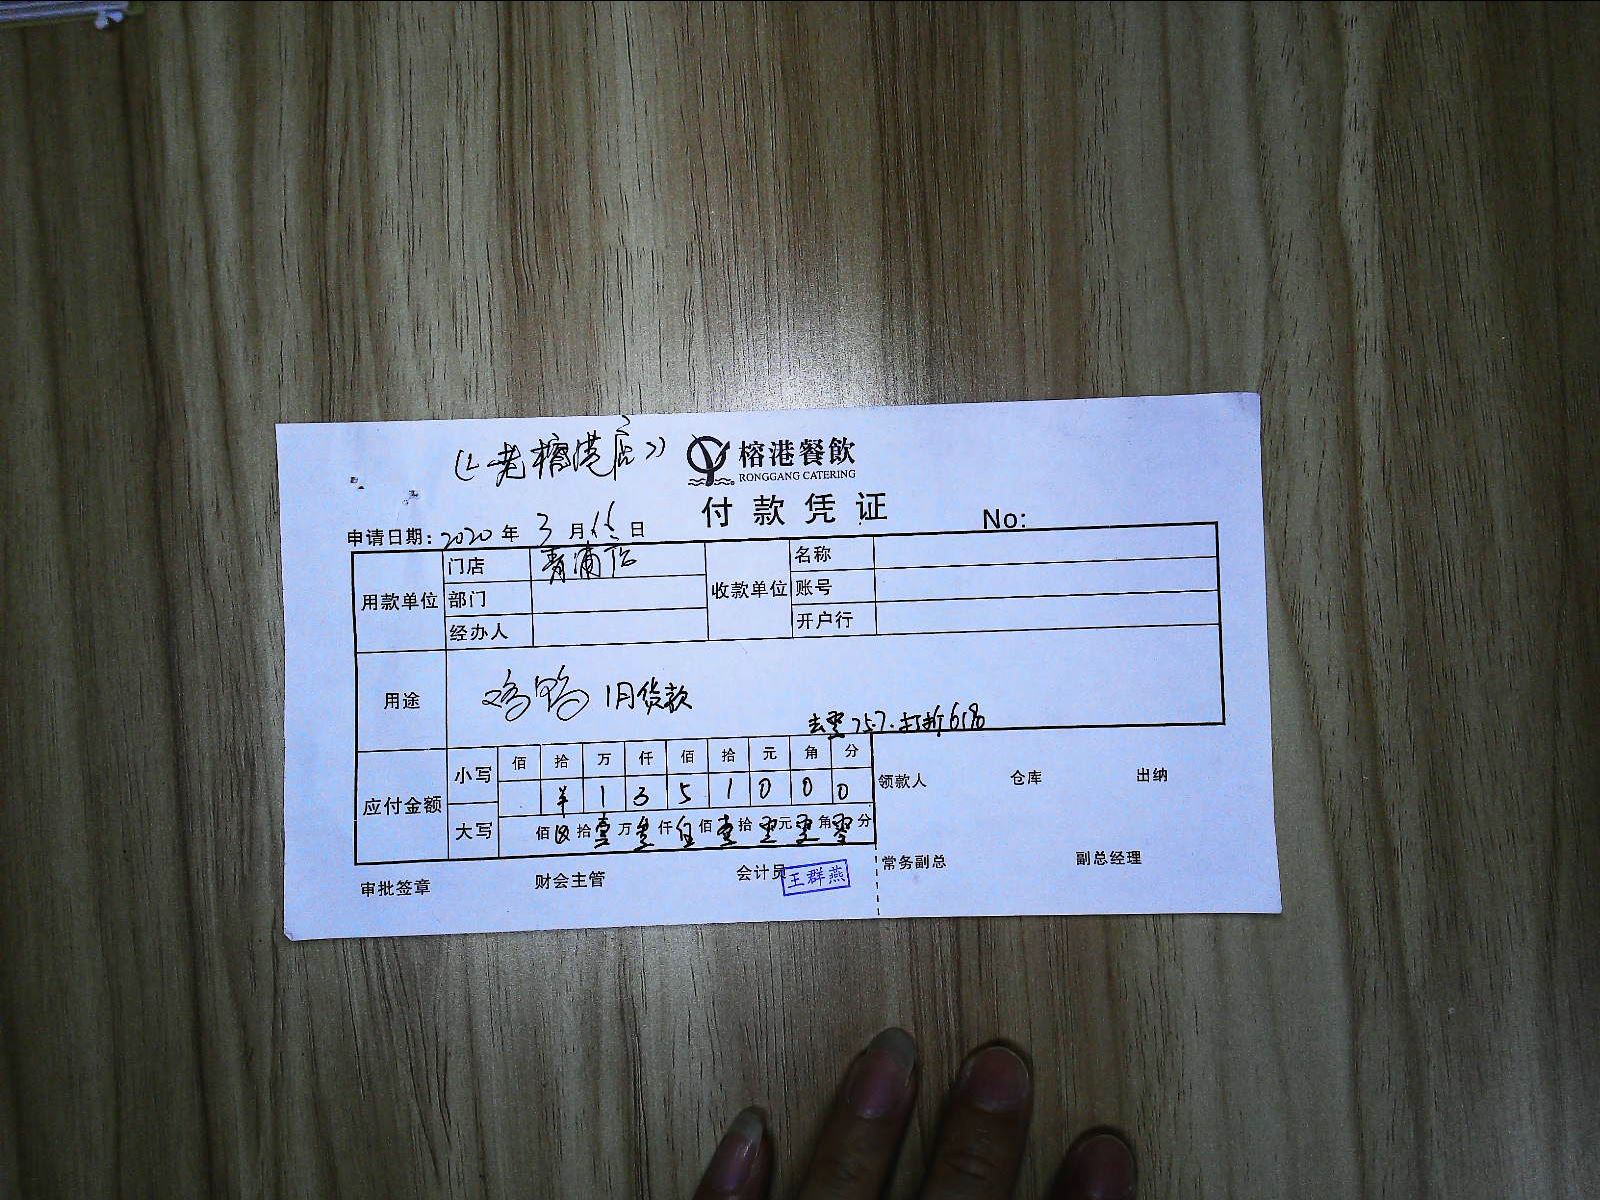 老榕港店 榕港餐飲
RONGGANG CATERING
付款凭证
No:
申请日期: 2020 年 3 月 日
用款单位 门店 青浦店 收款单位 名称
部门 账号
经办人 开户行
用途 鸡鸭 1月货款
去零 75.7. 打折 6%
应付金额 小写 佰 拾 万 仟 佰 拾 元 角 分
¥ 1 3 5 1 0 0 0
大写 佰 ⊗ 拾 壹 万 叁 仟 伍 佰 壹 拾 零 元 零 角 零 分
领款人 仓库 出纳
审批签章 财会主管 会计员 王群燕 常务副总 副总经理